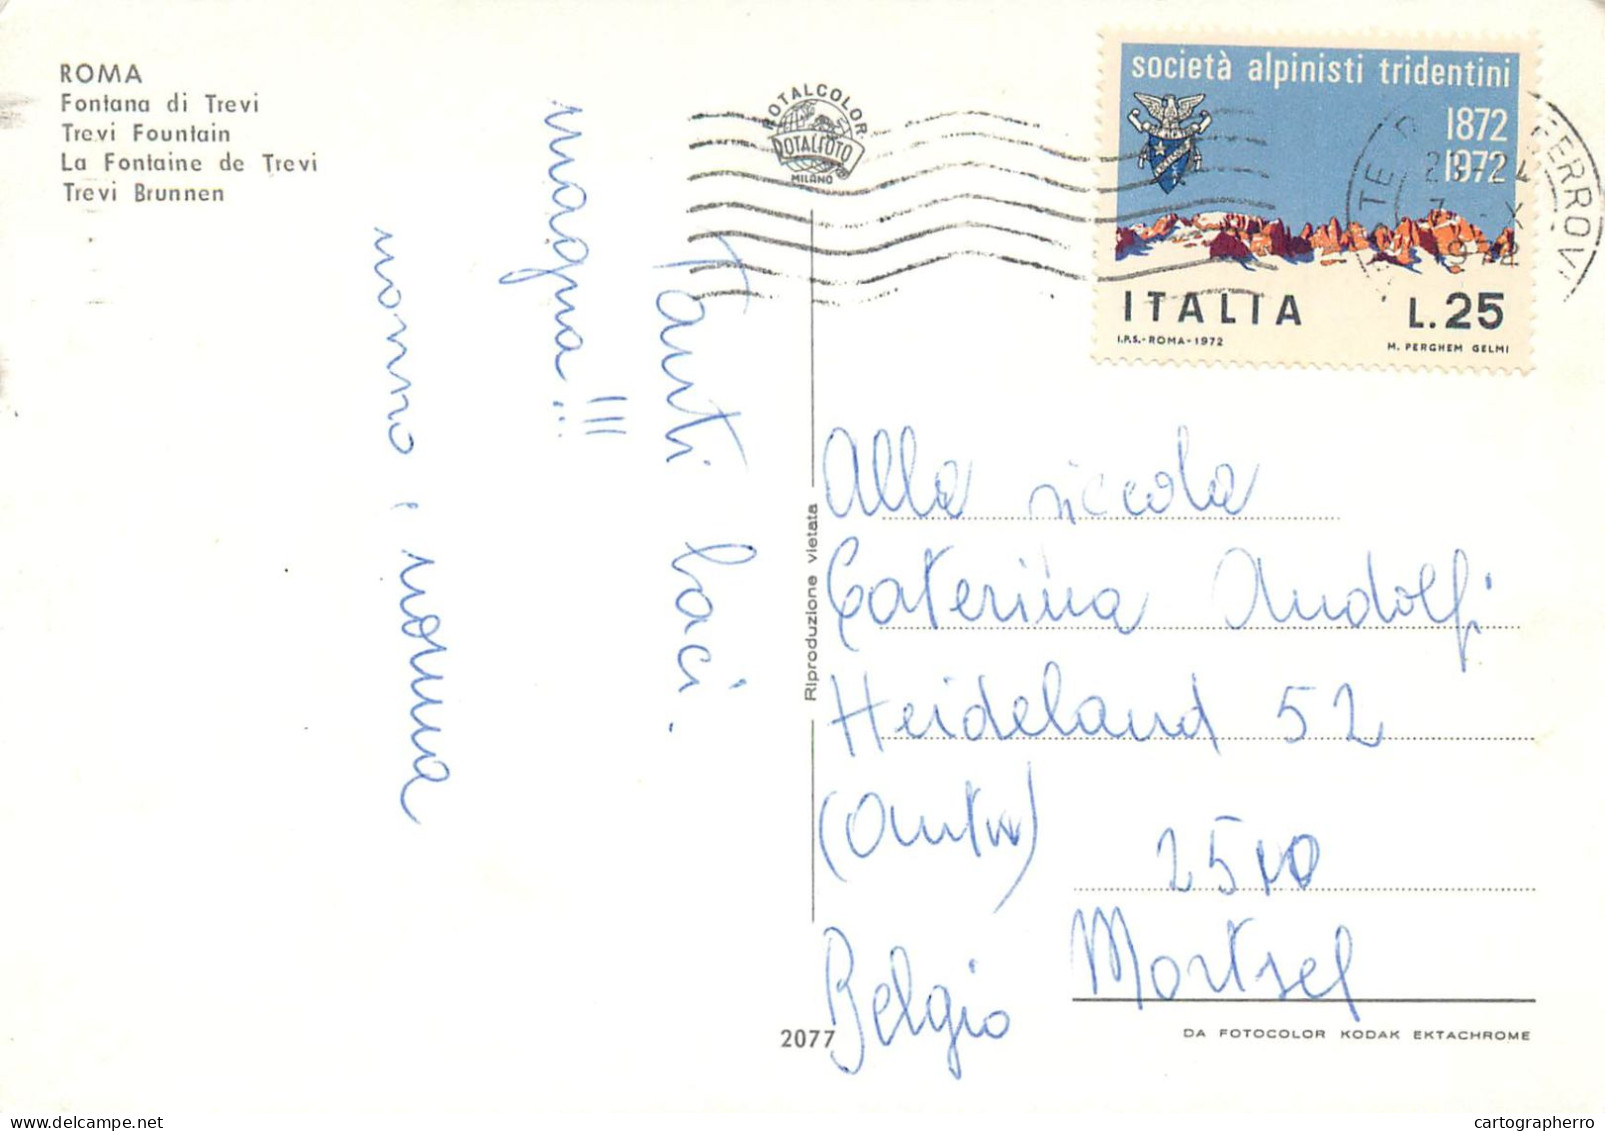 ROMA
Fontana di Trevi
Trevi Fountain
La Fontaine de Trevi
Trevi Brunnen
ROTALCOLOR
ROTALFOTO
MILANO
società alpinisti tridentini
1872
1972
ITALIA L.25
I.P.S.-ROMA-1972 M. PERGHEM GELMI
FERROVI
Tanti baci.
magna !!!
nonno e nonna
Riproduzione vietata
Alla piccola
Caterina
Heideland 52
2510
Mortsel
Belgio
2077
DA FOTOCOLOR KODAK EKTACHROME
cartographerro